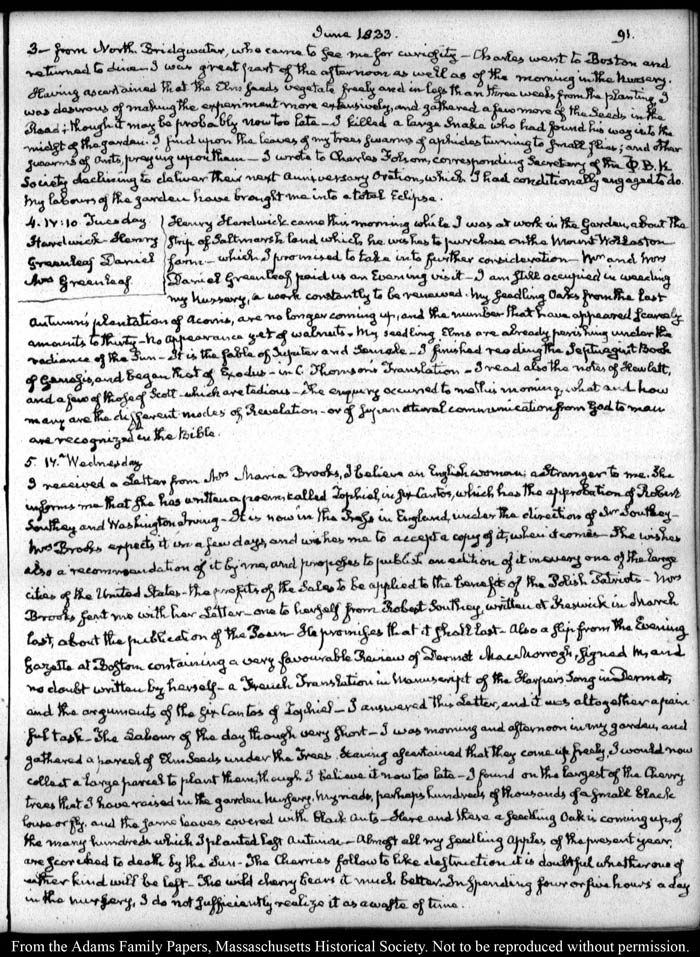 June 1833.
91.
3— from North Bridgwater, who came to see me for curiosity— Charles went to Boston and
returned to dine— I was great part of the afternoon as well as of the morning in the Nursery.
Having ascertained that the Elm seeds vegetate freely and in less than three weeks from the planting, I
was desirous of making the experiment more extensively, and gathered a few more of the Seeds in the
Road; though it may be probably now too late— I killed a large Snake who had found his way into the
midst of the garden. I find upon the leaves of my trees swarms of aphides turning to small flies; and other
swarms of Ants, preying upon them— I wrote to Charles Folsom, corresponding Secretary of the Φ.B.K
Society declining to deliver their next Anniversary Oration, which I had conditionally engaged to do.
My labours of the garden have brought me into a total Eclipse.
4. IV:10. Tuesday.
Hardwick— Henry
Greenleaf Daniel
Mrs Greenleaf
Henry Hardwick came this morning while I was at work in the Garden, about the
strip of Saltmarsh land which he wishes to purchase on the Mount Wollaston
farm— which I promised to take into further consideration— Mr and Mrs
Daniel Greenleaf paid us an Evening visit— I am still occupied in weeding
my Nursery, a work constantly to be renewed. My seedling Oaks from the last
Autumn's plantation of Acorns, are no longer coming up, and the number that have appeared scarcely
amounts to thirty— No appearance yet of walnuts— My seedling Elms are already perishing under the
radiance of the Sun— It is the fable of Jupiter and Semele— I finished reading the Septuagint Book
of Genesis, and began that of Exodus— in C. Thomson's Translation— I read also the notes of Hewlett,
and a few of those of Scott— which are tedious— The enquiry occurred to me this morning, what and how
many are the different modes of Revelation— or of supernatural communication from God to man
are recognized in the Bible.
5. IV. Wednesday
I received a Letter from Mrs Maria Brooks, I believe an English woman; a stranger to me. She
informs me that she has written a poem called Zophiel, in six Cantos, which has the approbation of Robert
Southey and Washington Irving— It is now in the Press in England, under the direction of Mr Southey—
Mrs Brooks expects it in a few days, and wishes me to accept a copy of it, when it comes— She wishes
also a recommendation of it by me, and proposes to publish an edition of it in every one of the large
cities of the United States— the profits of the Sales to be applied to the benefit of the Polish Patriots— Mrs
Brooks sent me with her Letter— one to herself from Robert Southey, written at Keswick in March
last, about the publication of the Poem— He promises that it shall last— Also a slip from the Evening
Gazette at Boston containing a very favourable Review of Dermot MacMorrogh, signed M, and
no doubt written by herself— a French Translation in Manuscript of the Harper's Song in Dermot,
and the arguments of the six Cantos of Zophiel— I answered this Letter, and it was altogether a pain
ful task— The Labour of the day though very short— I was morning and afternoon in my garden, and
gathered a parcel of Elm Seeds under the Trees. Having ascertained that they come up freely, I would now
collect a large parcel to plant them, though I believe it now too late— I found on the largest of the Cherry
trees that I have raised in the garden nursery, myriads, perhaps hundreds of thousands of a small black
louse or fly, and the same leaves covered with black Ants— Here and there a seedling Oak is coming up, of
the many hundreds which I planted last Autumn— Almost all my seedling Apples of the present year
are scorched to death by the Sun— The Cherries follow to like destruction it is doubtful whether one of
either kind will be left— The wild cherry bears it much better. In spending four or five hours a day
in the nursery, I do not sufficiently realize it as a waste of time.
From the Adams Family Papers, Massachusetts Historical Society. Not to be reproduced without permission.